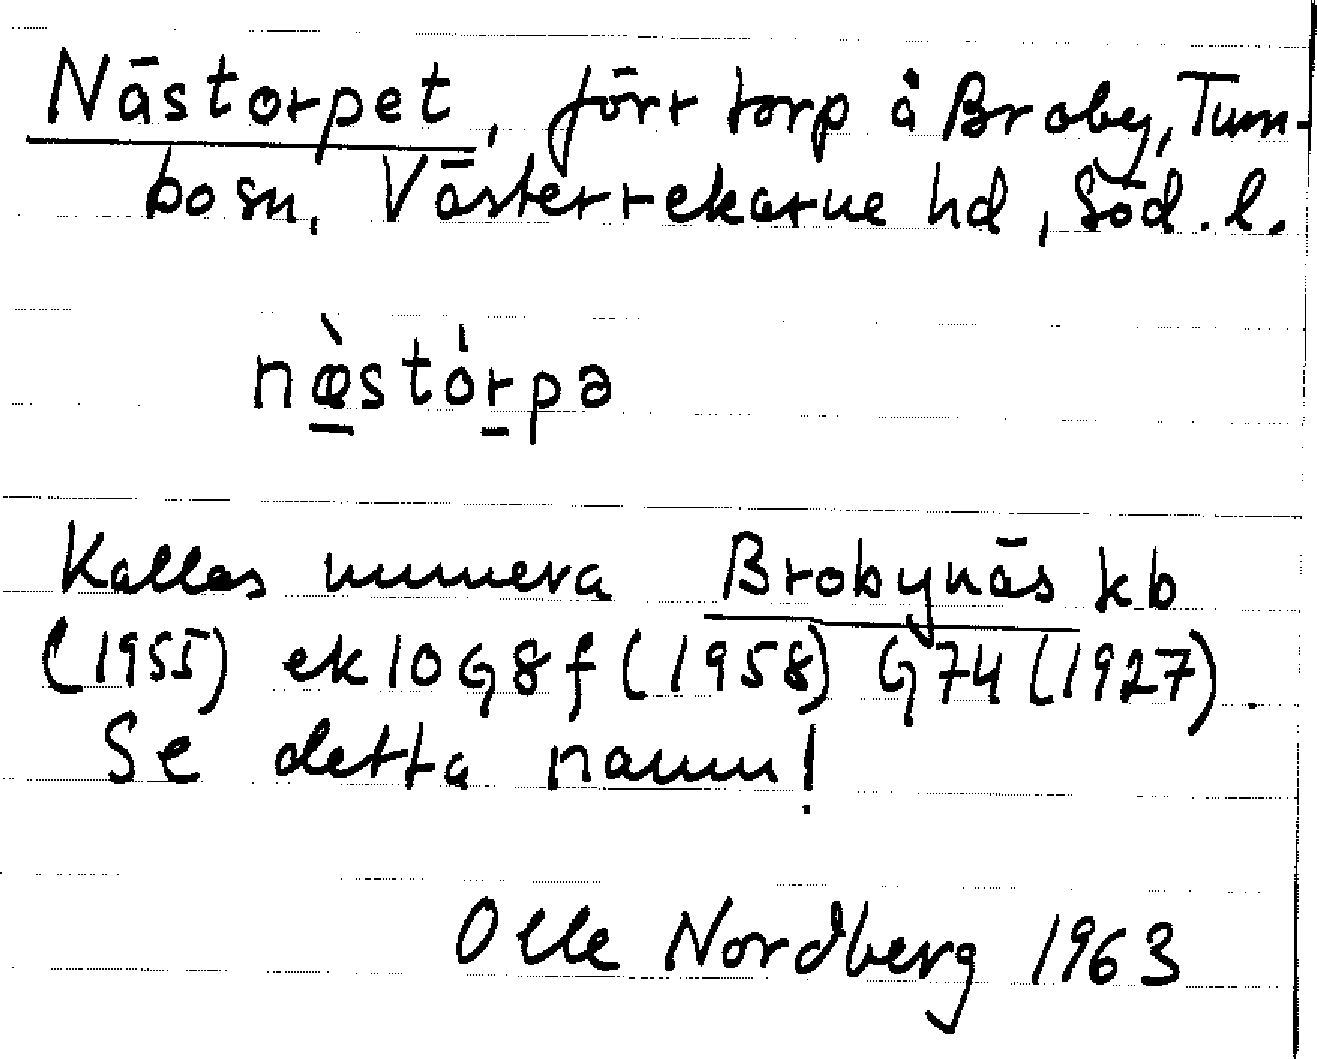 Nästorpet, förr torp å Broby, Tum-
bo sn, Västerrekarne hd, Söd. l.
næ̀stórpə
Kallas numera Brobynäs kb
(1955) ek 10G8f (1958) G74 (1927).
Se detta namn!
Olle Nordberg 1963